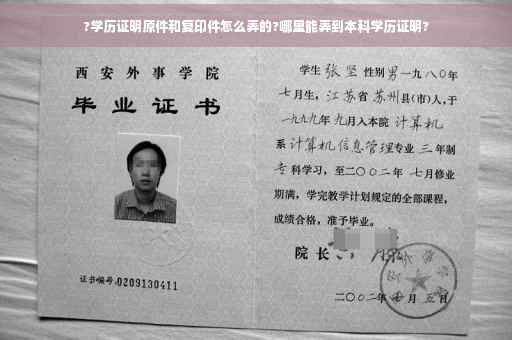 ?学历证明原件和复印件怎么弄的?哪里能弄到本科学历证明?
西安外事学院
毕业证书
证书编号:0209130411
学生张坚性别男一九八〇年
七月生,江苏省苏州县(市)人,于
一九九九年九月入本院计算机
系计算机信息管理专业三年制
专科学习,至二〇〇二年七月修业
期满,学完教学计划规定的全部课程,
成绩合格,准予毕业。
院长
二〇〇二年七月五日